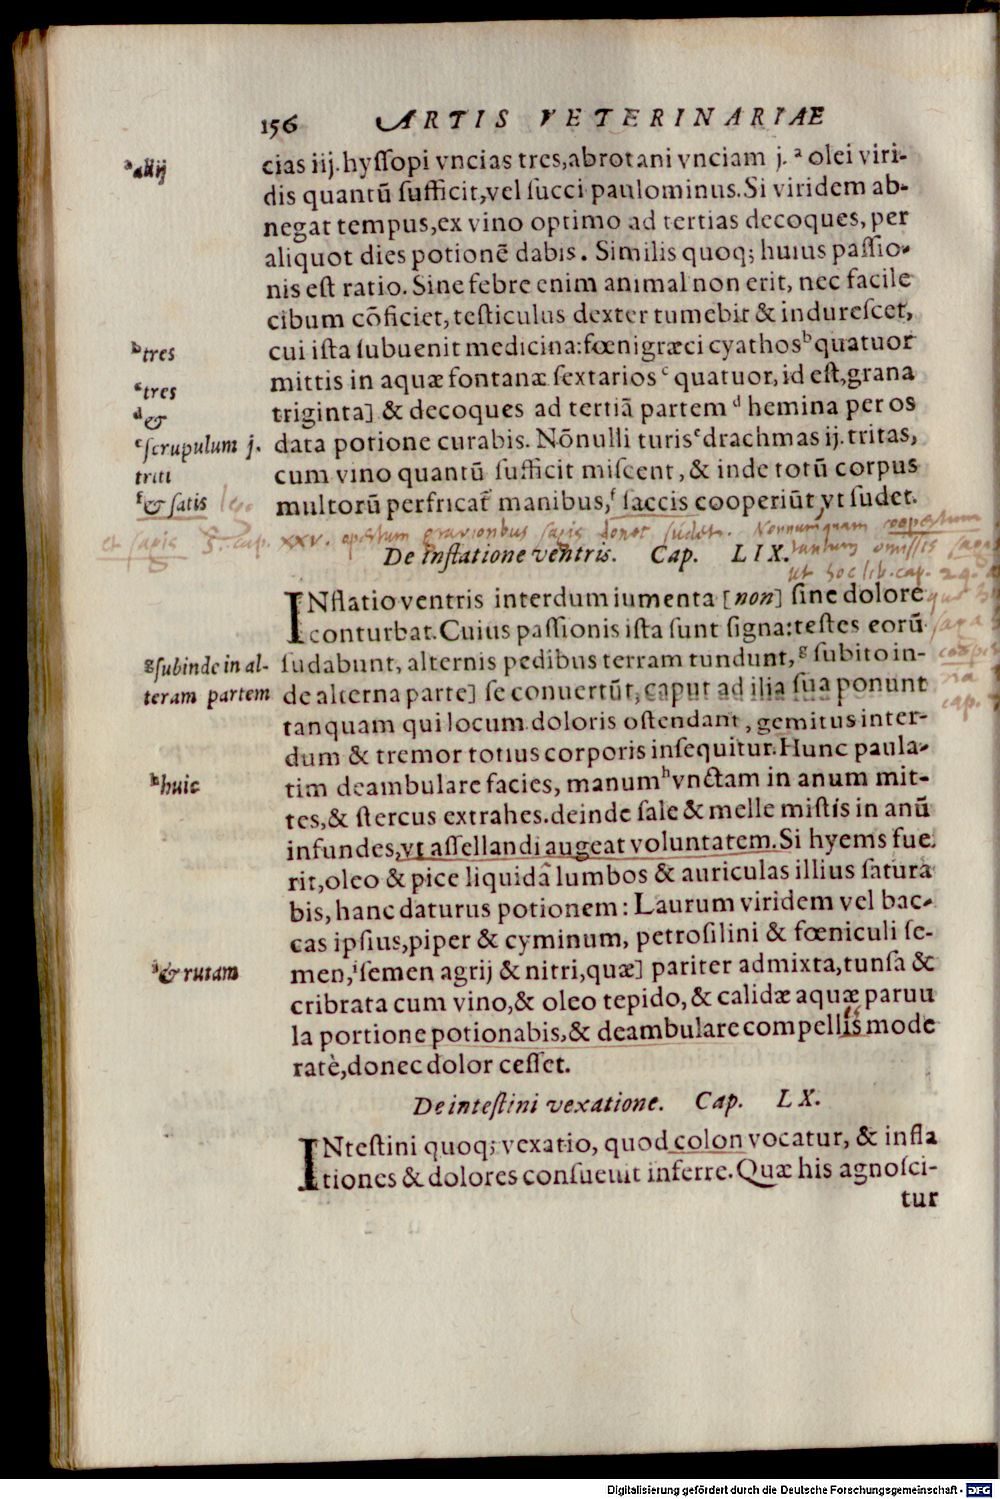 156 ARTIS VETERINARIAE
ᵃallij
cias iij. hyſſopi vncias tres, abrotani vnciam j. ᵃ olei viri-
dis quantũ ſufficit, vel ſucci paulominus. Si viridem ab-
negat tempus, ex vino optimo ad tertias decoques, per
aliquot dies potionẽ dabis. Similis quoq; huius paſſio-
nis eſt ratio. Sine febre enim animal non erit, nec facile
cibum cõficiet, teſticulus dexter tumebit & indureſcet,
ᵇtres
cui iſta ſubuenit medicina: fœnigræci cyathos ᵇ quatuor
ᶜtres
mittis in aquæ fontanæ ſextarios ᶜ quatuor, id eſt, grana
ᵈ&
triginta] & decoques ad tertiã partem ᵈ hemina per os
ᵉſcrupulum j.
data potione curabis. Nõnulli turis ᵉ drachmas ij. tritas,
triti
cum vino quantũ ſufficit miſcent, & inde totũ corpus
ᶠ& ſatis
multorũ perfricat̃ manibus, ᶠ ſaccis cooperiũt, vt ſudet.
et sagis
S. cap. XXV. opertum gravioribus sagis donec sudet. Nonnunquam coopertum
tantum omissis
ut hoc lib. cap. 29.
De inflatione ventris. Cap. LIX.
INflatio ventris interdum iumenta [non] ſine dolore
conturbat. Cuius paſſionis iſta ſunt ſigna: teſtes eorũ
ᵍſubinde in al-
ſudabunt, alternis pedibus terram tundunt, ᵍ ſubito in-
teram partem
de alterna parte] ſe conuertũt, caput ad ilia ſua ponunt
cap.
tanquam qui locum doloris oſtendant, gemitus inter-
dum & tremor totius corporis inſequitur. Hunc paula-
ʰhuic
tim deambulare facies, manum ʰ vnctam in anum mit-
tes, & ſtercus extrahes. deinde ſale & melle miſtis in anũ
infundes, vt aſſellandi augeat voluntatem. Si hyems fue
rit, oleo & pice liquidâ lumbos & auriculas illius ſatura
bis, hanc daturus potionem: Laurum viridem vel bac-
cas ipſius, piper & cyminum, petroſilini & fœniculi ſe-
ⁱ& rutam
men, ⁱ ſemen agrij & nitri, quæ] pariter admixta, tunſa &
cribrata cum vino, & oleo tepido, & calidæ aquæ paruu
la portione potionabis, & deambulare compellis mode
es
ratè, donec dolor ceſſet.
De inteſtini vexatione. Cap. LX.
INteſtini quoq; vexatio, quod colon vocatur, & infla
tiones & dolores conſueuit inferre. Quæ his agnoſci-
tur
Digitalisierung gefördert durch die Deutsche Forschungsgemeinschaft - DFG